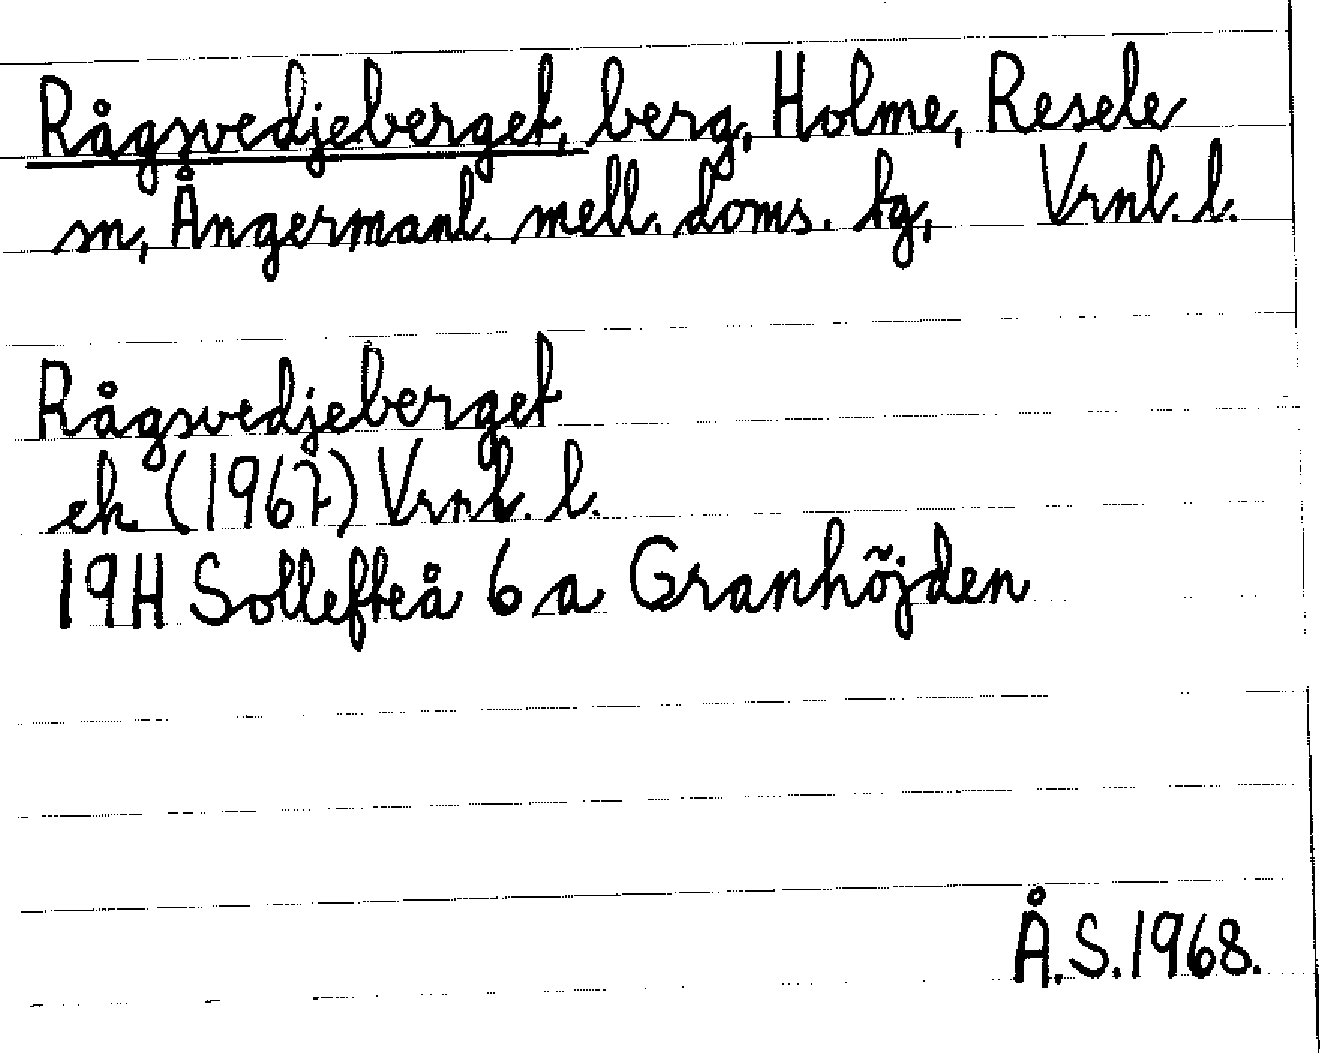 Rågsvedjeberget, berg, Holme, Resele
sn, Ångermanl. mell. doms. tg, Vrnl. l.
Rågsvedjeberget
ek (1967) Vrnl. l.
19H Sollefteå 6 a Granhöjden
Å.S.1968.